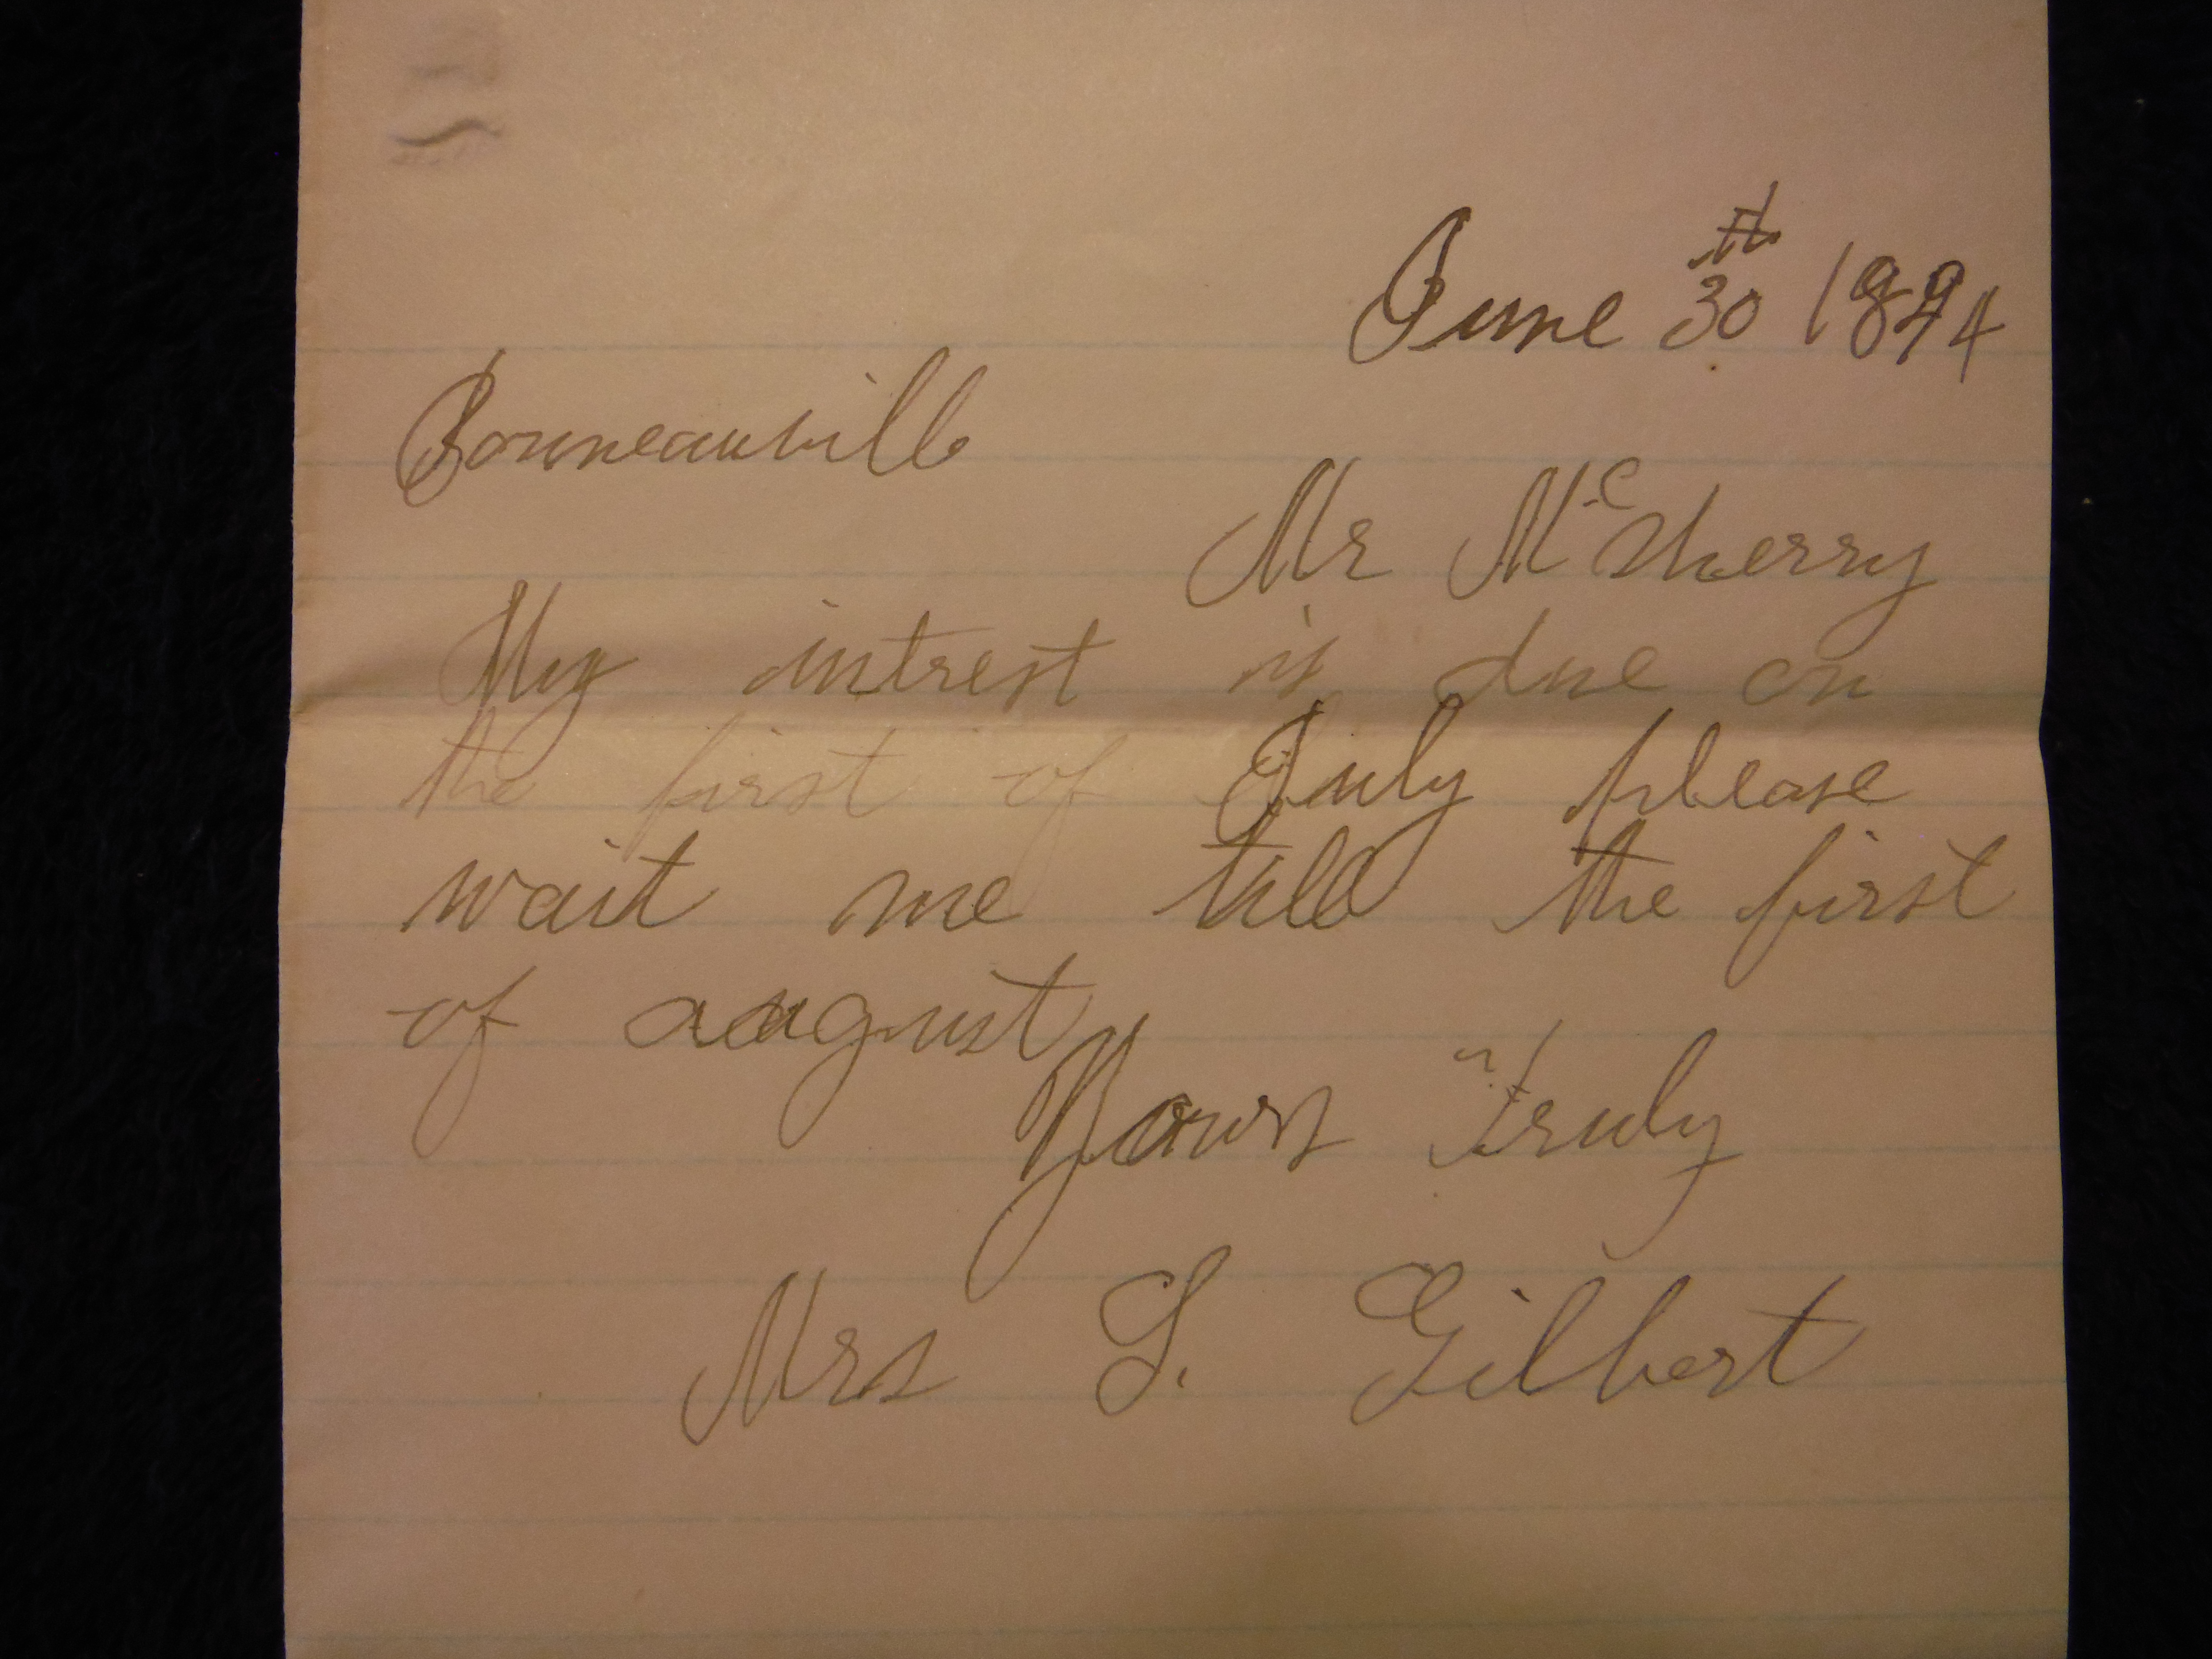 June 30th 1894
Bonneauville
Mr McSherry
My intrest is due on
the first of July please
wait me till the first
of august
Yours truly
Mrs S. Gilbert